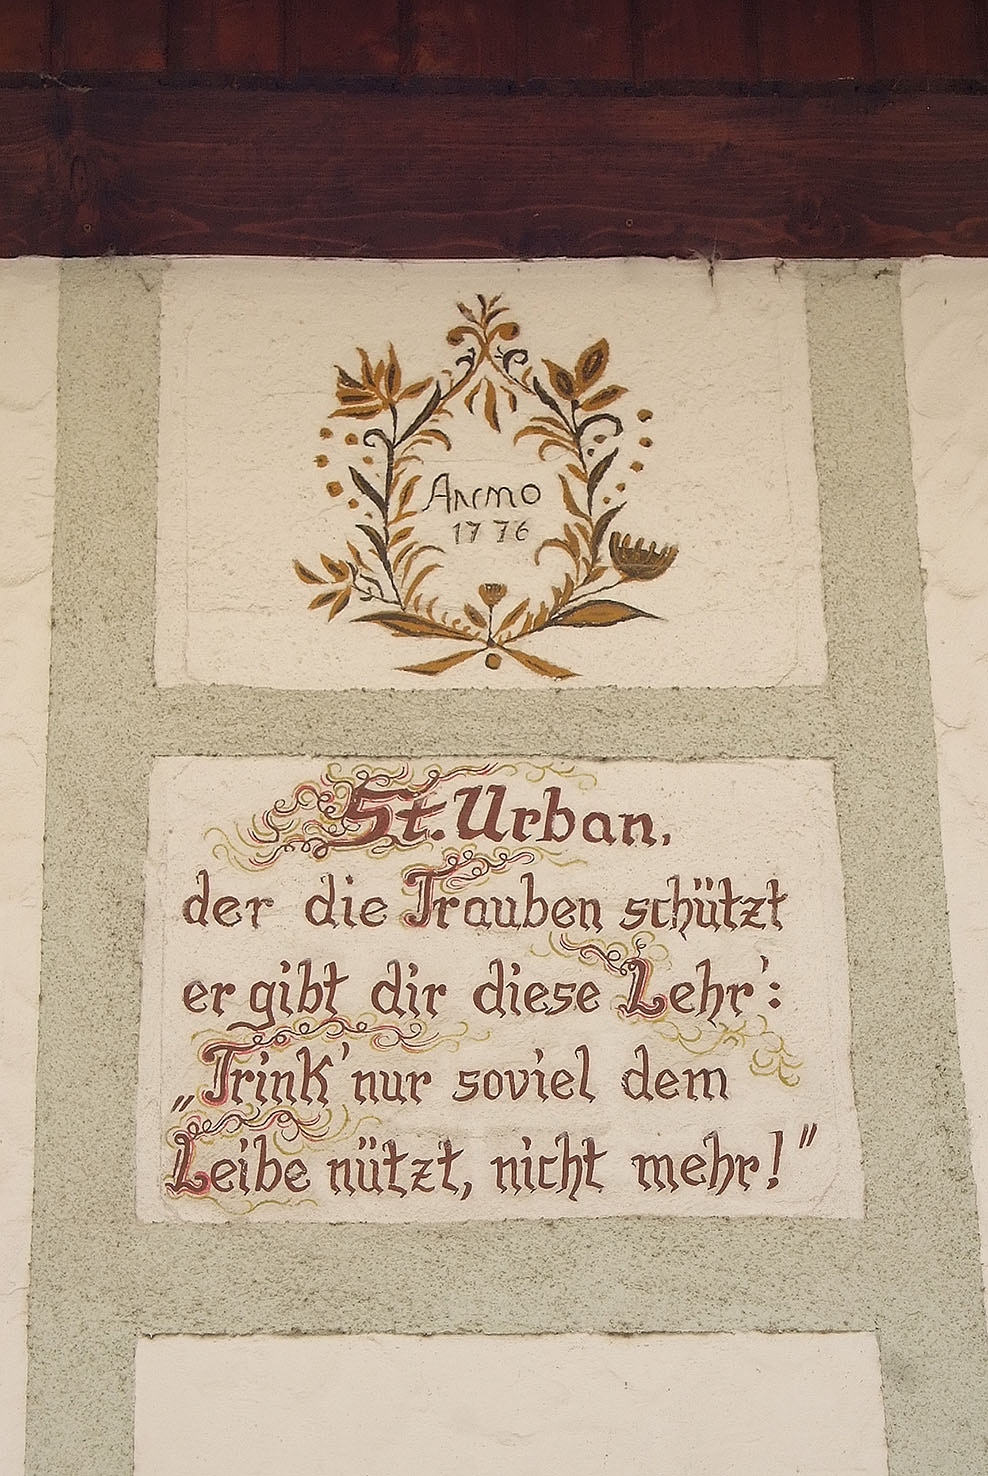 Anno
1776
St. Urban,
der die Trauben schützt
er gibt dir diese Lehr':
„Trink' nur soviel dem
Leibe nützt, nicht mehr!"